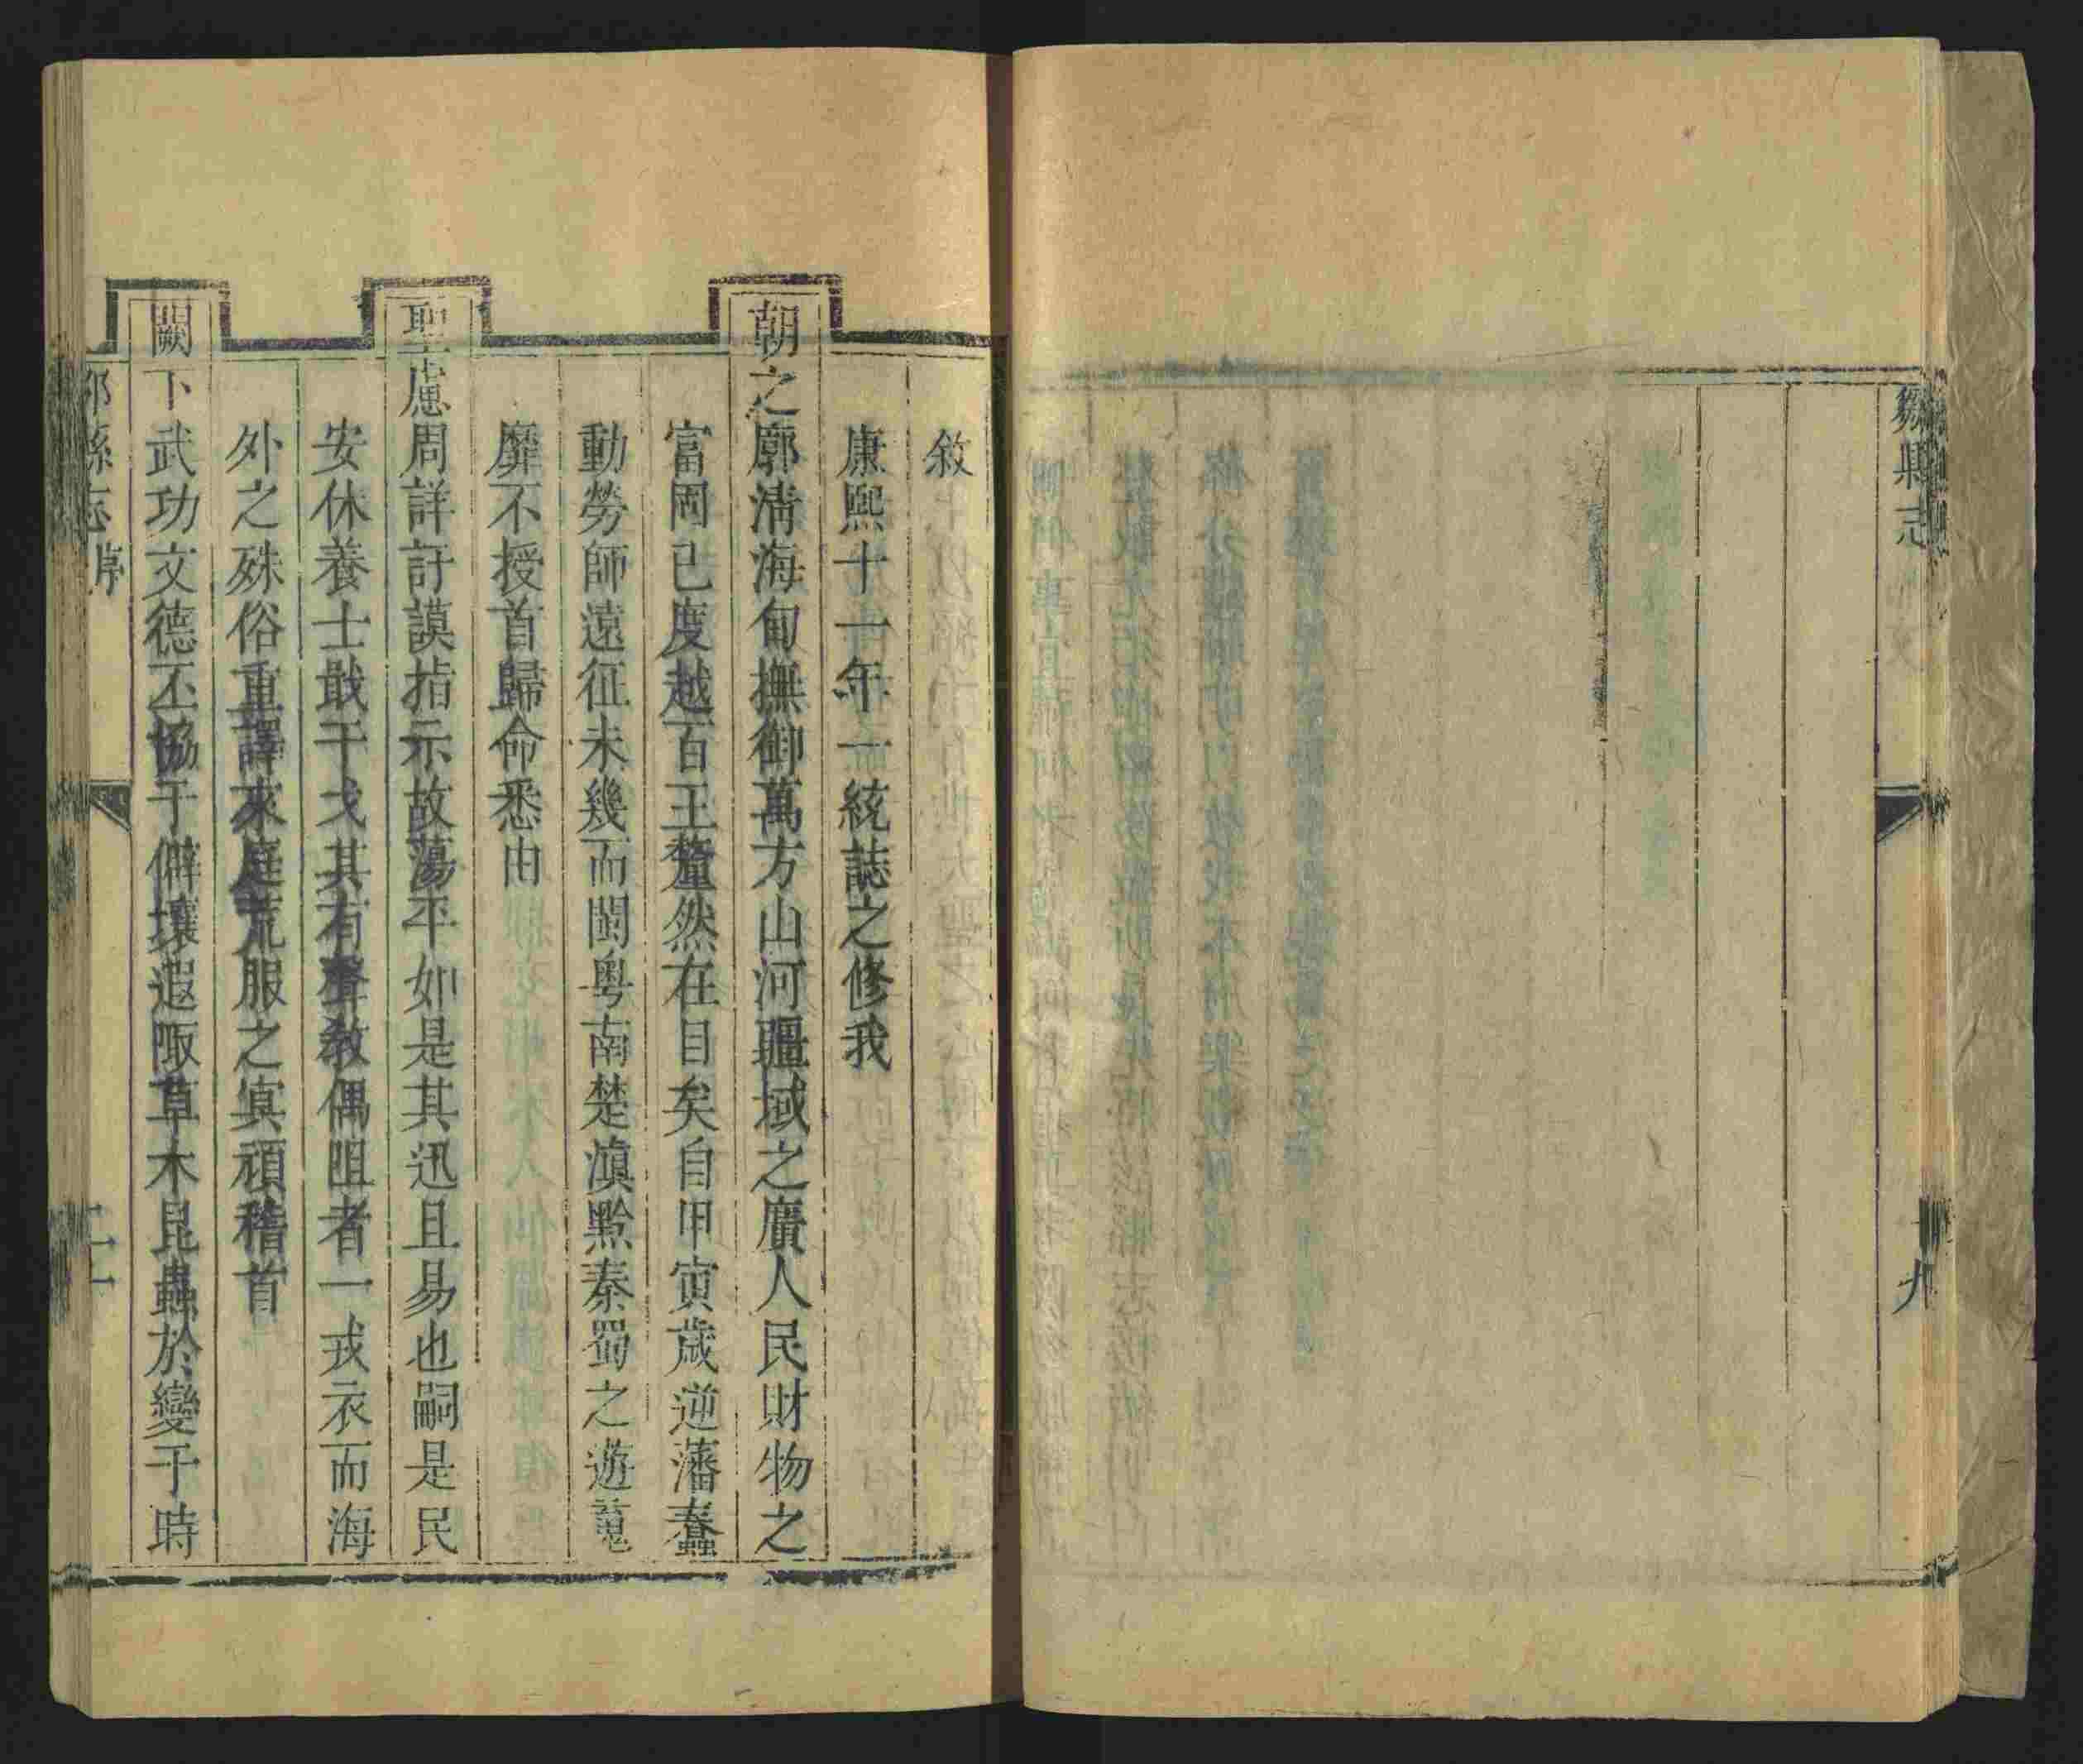 縣志
九
敘
康熙十一年一統誌之修我
朝之廓清海甸撫御萬方山河疆域之廣人民財物之
富固已度越百王釐然在目矣自甲寅歲逆藩蠢
動勞師遠征未幾而閩粵南楚滇黔秦蜀之遊蒐
靡不授首歸命悉由
聖慮周詳訏謨指示故蕩平如是其迅且易也嗣是民
安休養士戢干戈其有聲敎偶阻者一戎衣而海
外之殊俗重譯來庭荒服之寘頑稽首
闕下武功文德丕協于僻壤遐陬草木昆蟲於變于時
縣志序